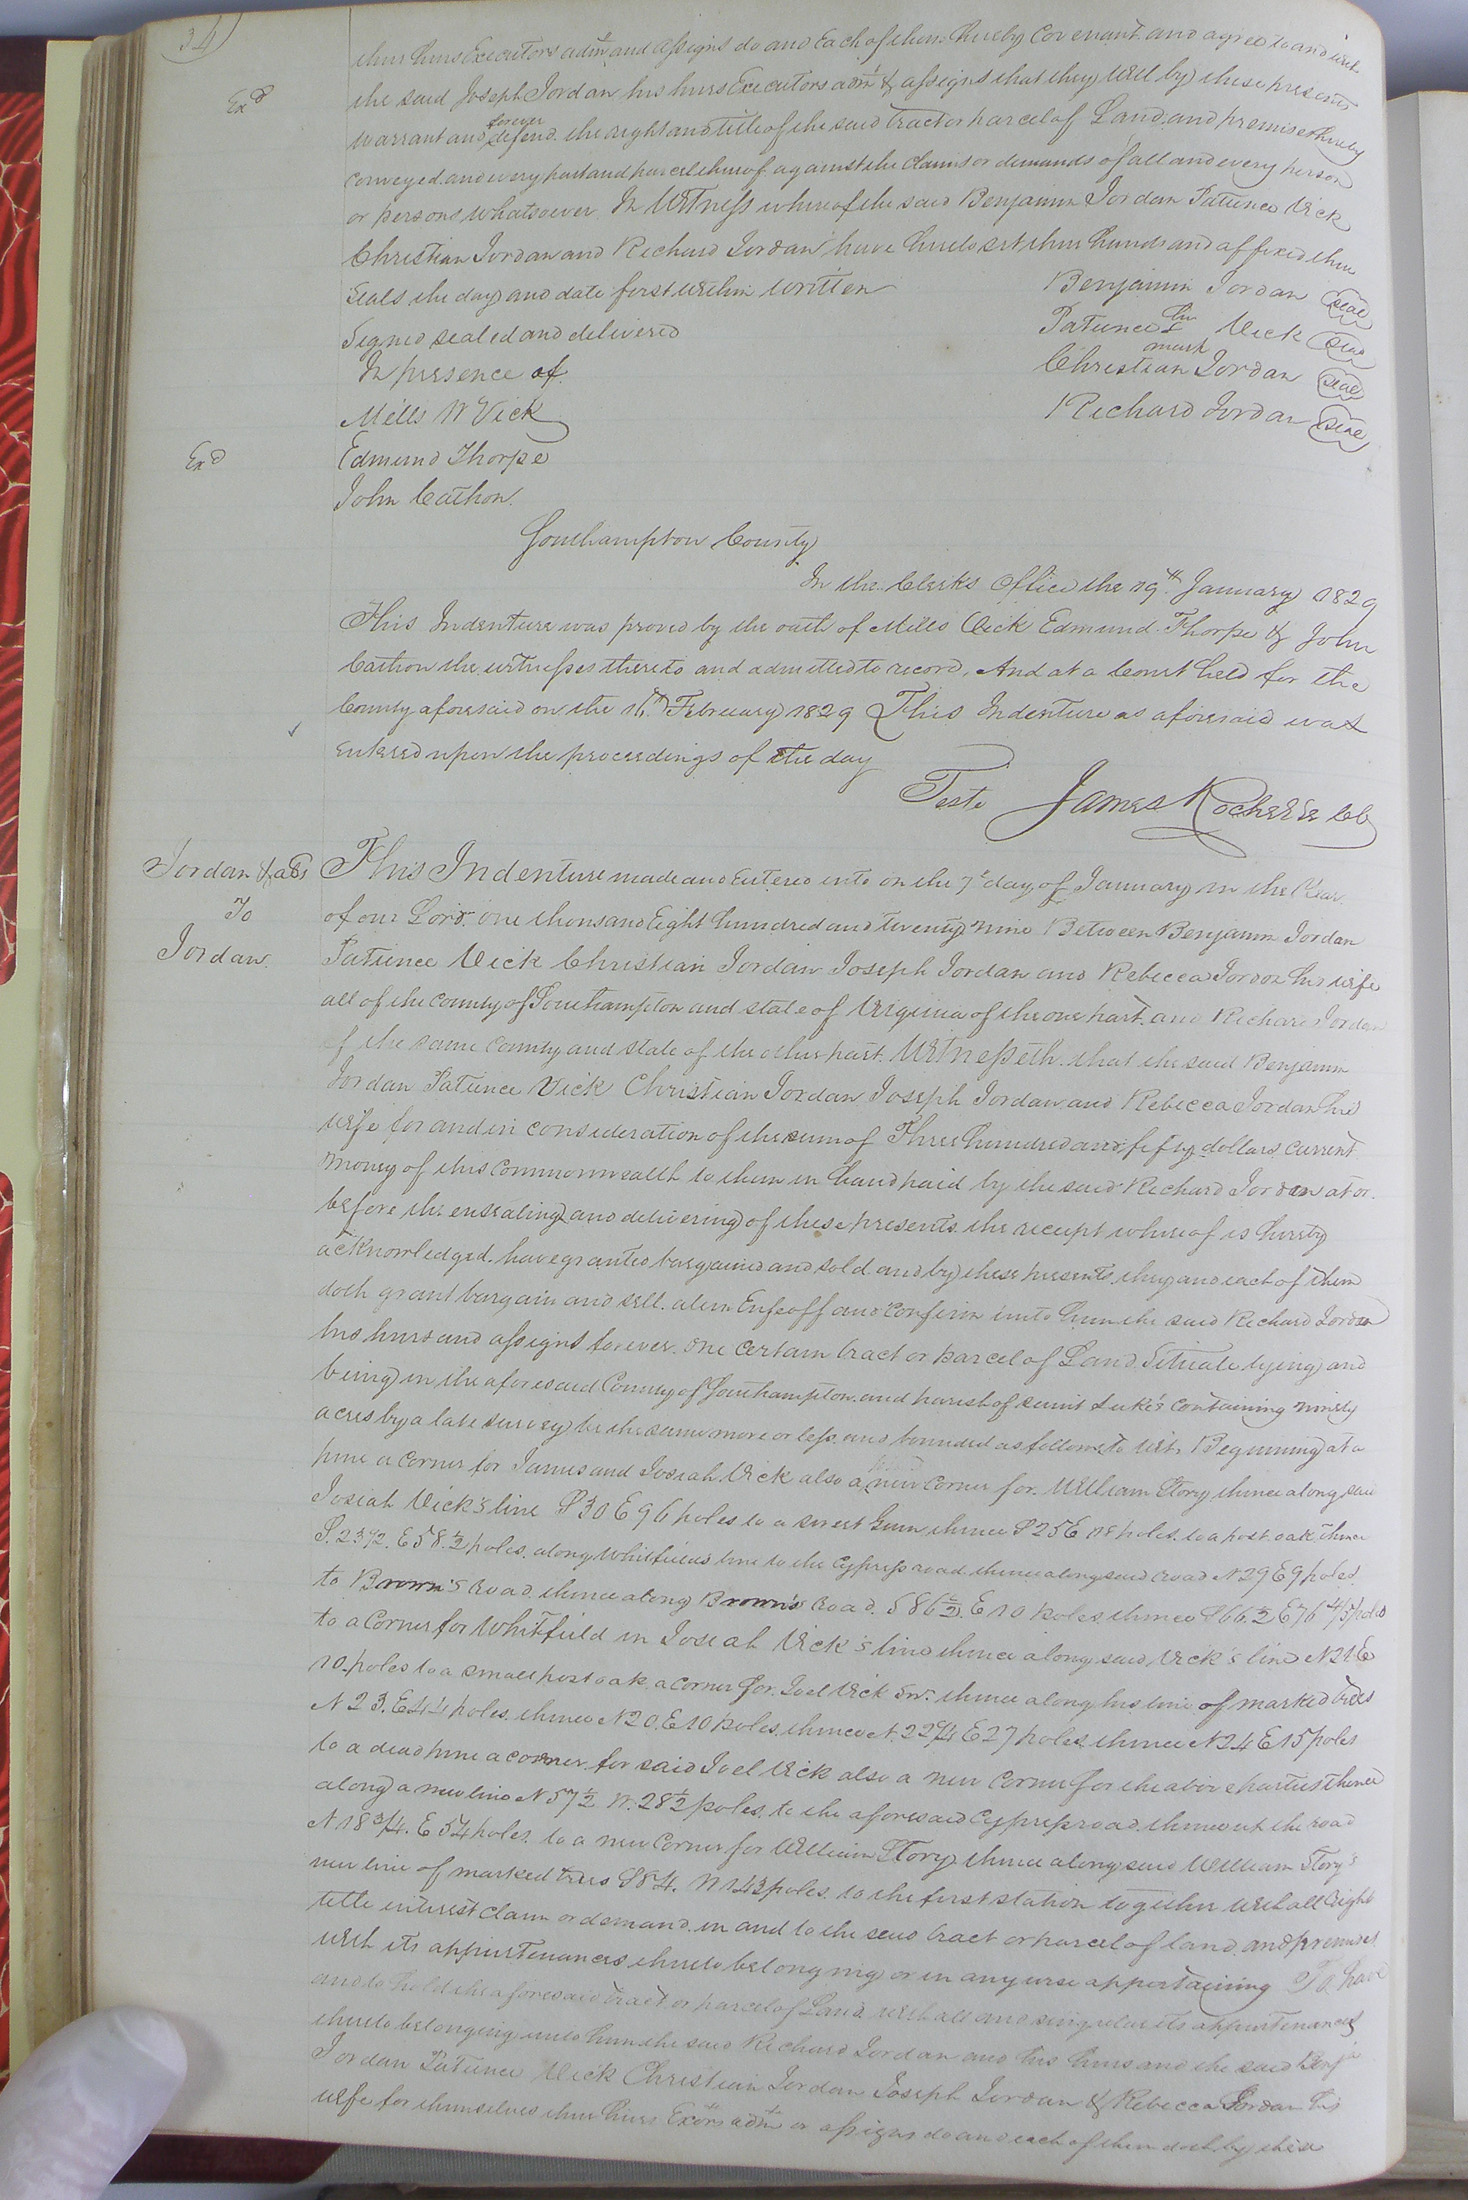 34
their heirs Executors admrs and assigns do and Each of them hereby Covenant and agree to and with
Exd
the said Joseph Jordan his heirs Executors admrs & assigns that they will by these presents
warrant and forever defend the right and title of the said tract or parcel of Land and premises hereby
conveyed and every part and parcel thereof against the claims or demands of all and every person
or persons whatsoever In Witness whereof the said Benjamin Jordan Patience Vick
Christian Jordan and Richard Jordan have hereto set their hands and affixed their
seals the day and date first within written
Benjamin Jordan seal
Signed sealed and delivered
Patience her mark Vick seal
In presence of
Christian Jordan seal
Mills W Vick
Richard Jordan seal
Exd
Edmund Thorpe
John Cathon
Southampton County
In the Clerks Office the 19th January 1829
This Indenture was proved by the oath of Mills Vick Edmund Thorpe & John
Cathon the witnesses thereto and admitted to record, And at a Court held for the
County aforesaid on the 16th February 1829 This Indenture as aforesaid was
entered upon the proceedings of the day
Teste James Rochelle Cl
Jordan & als
To
Jordan
This Indenture made and Entered into on the 7th day of January in the Year
of our Lord one thousand Eight hundred and twenty nine Between Benjamin Jordan
Patience Vick Christian Jordan Joseph Jordan and Rebecca Jordan his wife
all of the County of Southampton and state of Virginia of the one part and Richard Jordan
of the same County and state of the other part. Witnesseth that the said Benjamin
Jordan Patience Vick Christian Jordan Joseph Jordan and Rebecca Jordan his
wife for and in consideration of the sum of Three hundred and fifty dollars current
money of this commonwealth to them in hand paid by the said Richard Jordan at or
before the ensealing and delivering of these presents the receipt whereof is hereby
acknowledged have granted bargained and sold and by these presents they and each of them
doth grant bargain and sell alien Enfeoff and Confirm unto him the said Richard Jordan
his heirs and assigns forever one certain tract or parcel of Land Situate lying and
being in the aforesaid County of Southampton and parish of saint Luke's Containing ninety
acres by a late survey be the same more or less and bounded as follows to wit, Beginning at a
pine a corner for James and Josiah Vick also a new Corner for William Story thence along said
Josiah Vick's line S 30 E 96 poles to a sweet Gum thence S 25 E 18 poles to a post oak thence
S. 23 1/2. E 58 1/2 poles along Whitfields line to the Cypress road thence along said road N 29 E 9 poles
to Brown's road thence along Brown's road S 86 1/2 E 10 poles thence S 66 1/2 E 76 4/5 poles
to a Corner for Whitfield in Josiah Vick's line thence along said Vick's line N 21 E
10 poles to a small post oak a corner for Joel Vick Snr. thence along his line of marked trees
N 23. E 44 poles thence N 20. E 10 poles thence N. 22 3/4 E 27 poles thence N 24 E 15 poles
to a dead pine a corner for said Joel Vick also a new Corner for the above parties thence
along a new line N 57 1/2 W. 28 1/2 poles to the aforesaid Cypress road thence up the road
N 18 3/4. E 54 poles to a new Corner for William Story thence along said William Story's
new line of marked trees S 84. W 143 poles to the first station together with all right
title interest claim or demand in and to the said tract or parcel of land and premises
with its appurtenances thereto belonging or in any wise appertaining To have
and to hold the aforesaid tract or parcel of Land with all and singular its appurtenances
thereto belonging unto him the said Richard Jordan and his heirs and the said Benjn
Jordan Patience Vick Christian Jordan Joseph Jordan & Rebecca Jordan his
wife for themselves their heirs Exors admrs or assigns do and each of them doth by these